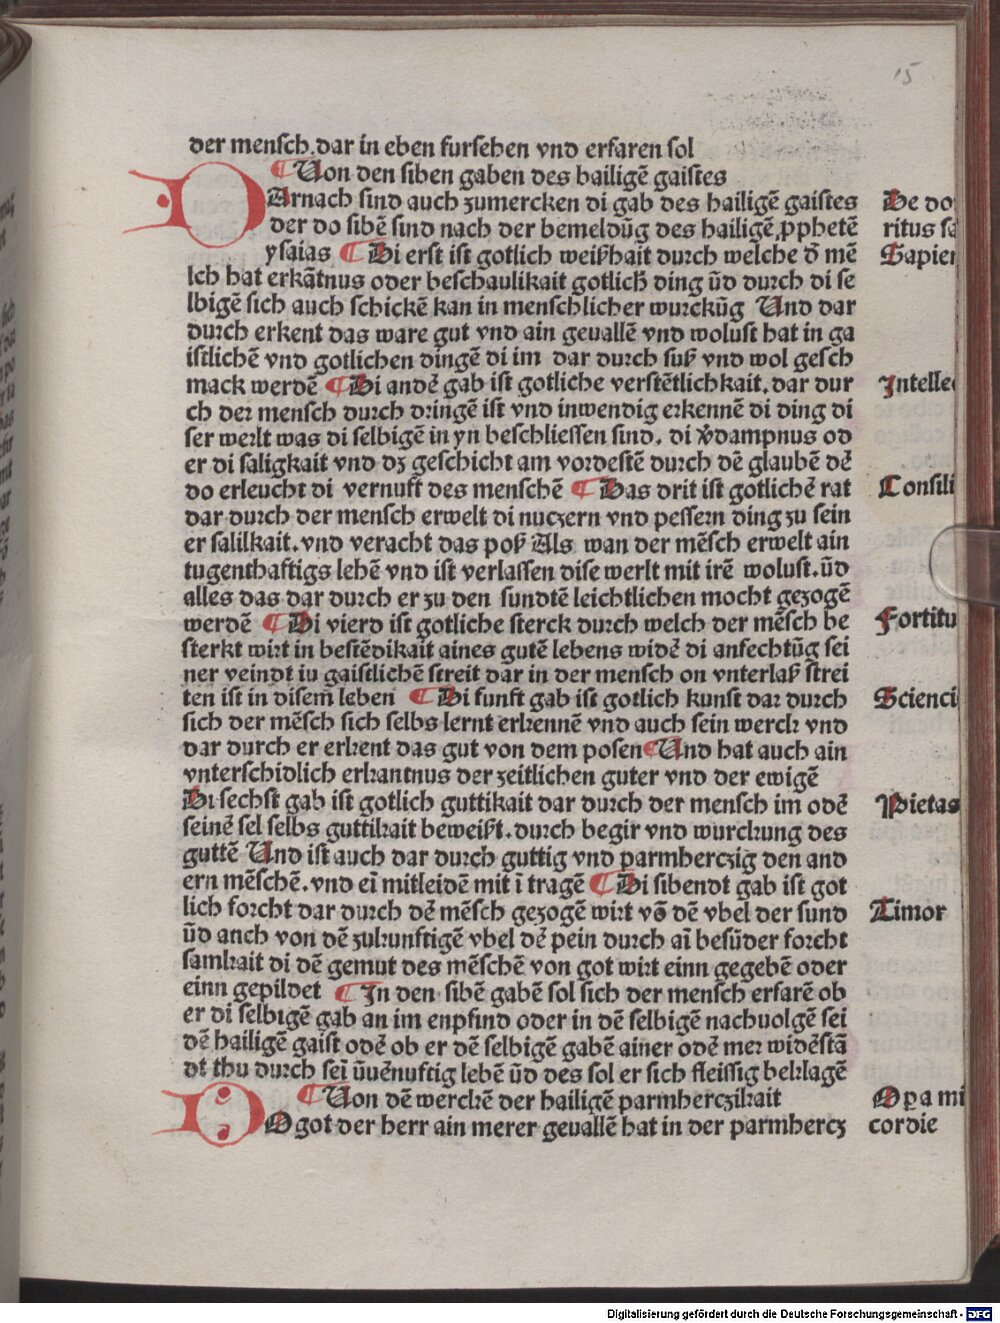 15
der mensch.dar in eben fursehen vnd erfaren sol
¶Uon den siben gaben des hailigē gaistes
DArnach sind auch zumercken di gab des hailigē gaistes
der do sibē sind nach der bemeldūg des hailigē,pphetē
ysaias ¶Di erst ist gotlich weißhait durch welche d̄ mē
sch hat erkātnus oder beschaulikait gotlich̄ ding ūd durch di se
lbigē sich auch schickē kan in menschlicher wurckūg Und dar
durch erkent das ware gut vnd ain geuallē vnd wolust hat in ga
istlichē vnd gotlichen dingē di im dar durch suß vnd wol gesch
mack werdē ¶Di andē gab ist gotliche verstētlichkait.dar dur
ch der mensch durch dringē ist vnd inwendig erkennē di ding di
ser werlt was di selbigē in yn beschliessen sind. di v̄dampnus od
er di saligkait vnd dz geschicht am vordestē durch dē glaubē dē
do erleucht di vernuft des menschē ¶Das drit ist gotlichē rat
dar durch der mensch erwelt di nuczern vnd pessern ding zu sein
er salilkait.vnd veracht das poß Als wan der mēsch erwelt ain
tugenthaftigs lebē vnd ist verlassen dise werlt mit irē wolust.ūd
alles das dar durch er zu den sundtē leichtlichen mocht gezogē
werdē ¶Di vierd ist gotliche sterck durch welch der mēsch be
sterkt wirt in bestēdikait aines gutē lebens widē di anfechtūg sei
ner veindt iu gaistlichē streit dar in der mensch on vnterlaß strei
ten ist in disem̄ leben ¶Di funft gab ist gotlich kunst dar durch
sich der mēsch sich selbs lernt erkennē vnd auch sein werck vnd
dar durch er erkent das gut von dem posen ¶Und hat auch ain
vnterschidlich erkantnus der zeitlichen guter vnd der ewigē
Di sechst gab ist gotlich guttikait dar durch der mensch im odē
seinē sel selbs guttikait beweißt.durch begir vnd wurckung des
guttē Und ist auch dar durch guttig vnd parmherczig den and
ern mēschē.vnd eī mitleidē mit ī tragē ¶Di sibendt gab ist got
lich forcht dar durch dē mēsch gezogē wirt vō dē vbel der sund
ūd anch von dē zukunftigē vbel dē pein durch aī besūder forcht
samkait di dē gemut des mēschē von got wirt einn gegebē oder
einn gepildet ¶In den sibē gabē sol sich der mensch erfarē ob
er di selbigē gab an im enpfind oder in dē selbigē nachuolgē sei
dē hailigē gaist odē ob er dē selbigē gabē ainer odē mer widēstā
dt thu durch seī ūuēnuftig lebē ūd des sol er sich fleissig beklagē
¶Uon dē werckē der hailigē parmherczikait
DO got der herr ain merer geuallē hat in der parmhercz
De do
ritus sa
Sapien
Intellec
Consili
Fortitu
Scienci
Pietas
Timor
Opa mi
cordie
Digitalisierung gefördert durch die Deutsche Forschungsgemeinschaft - DFG